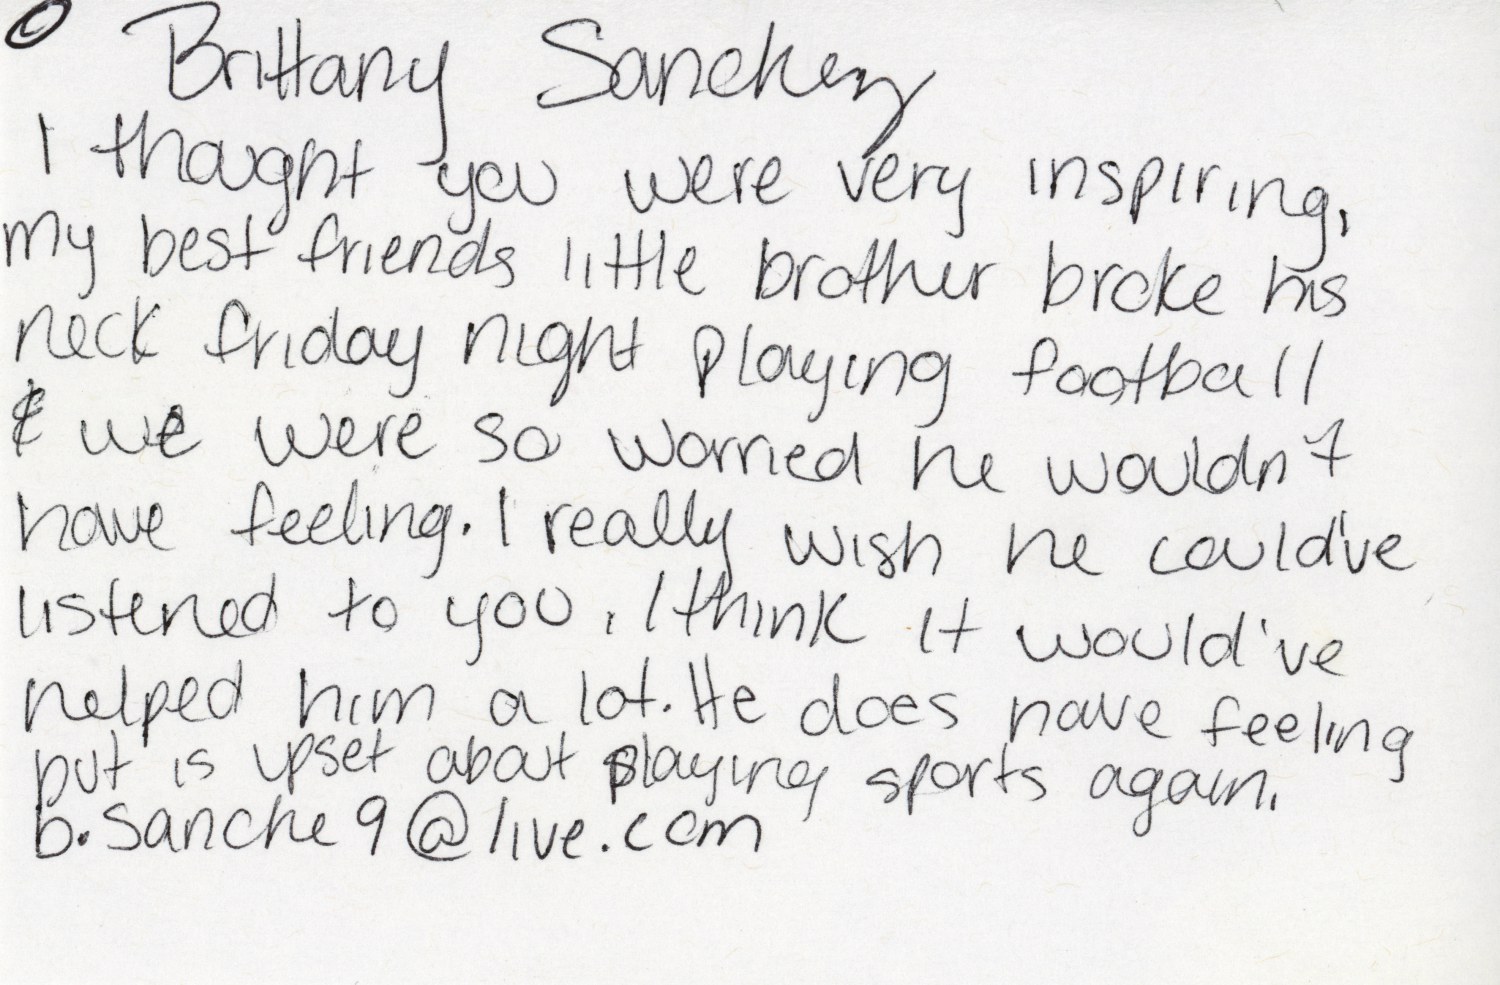 © Brittany Sanchez
I thought you were very inspiring,
my best friends little brother broke his
neck friday night playing football
& we were so worried he wouldn't
have feeling. I really wish he could've
listened to you, I think it would've
helped him a lot. He does have feeling
but is upset about playing sports again.
b.sanche9@live.com